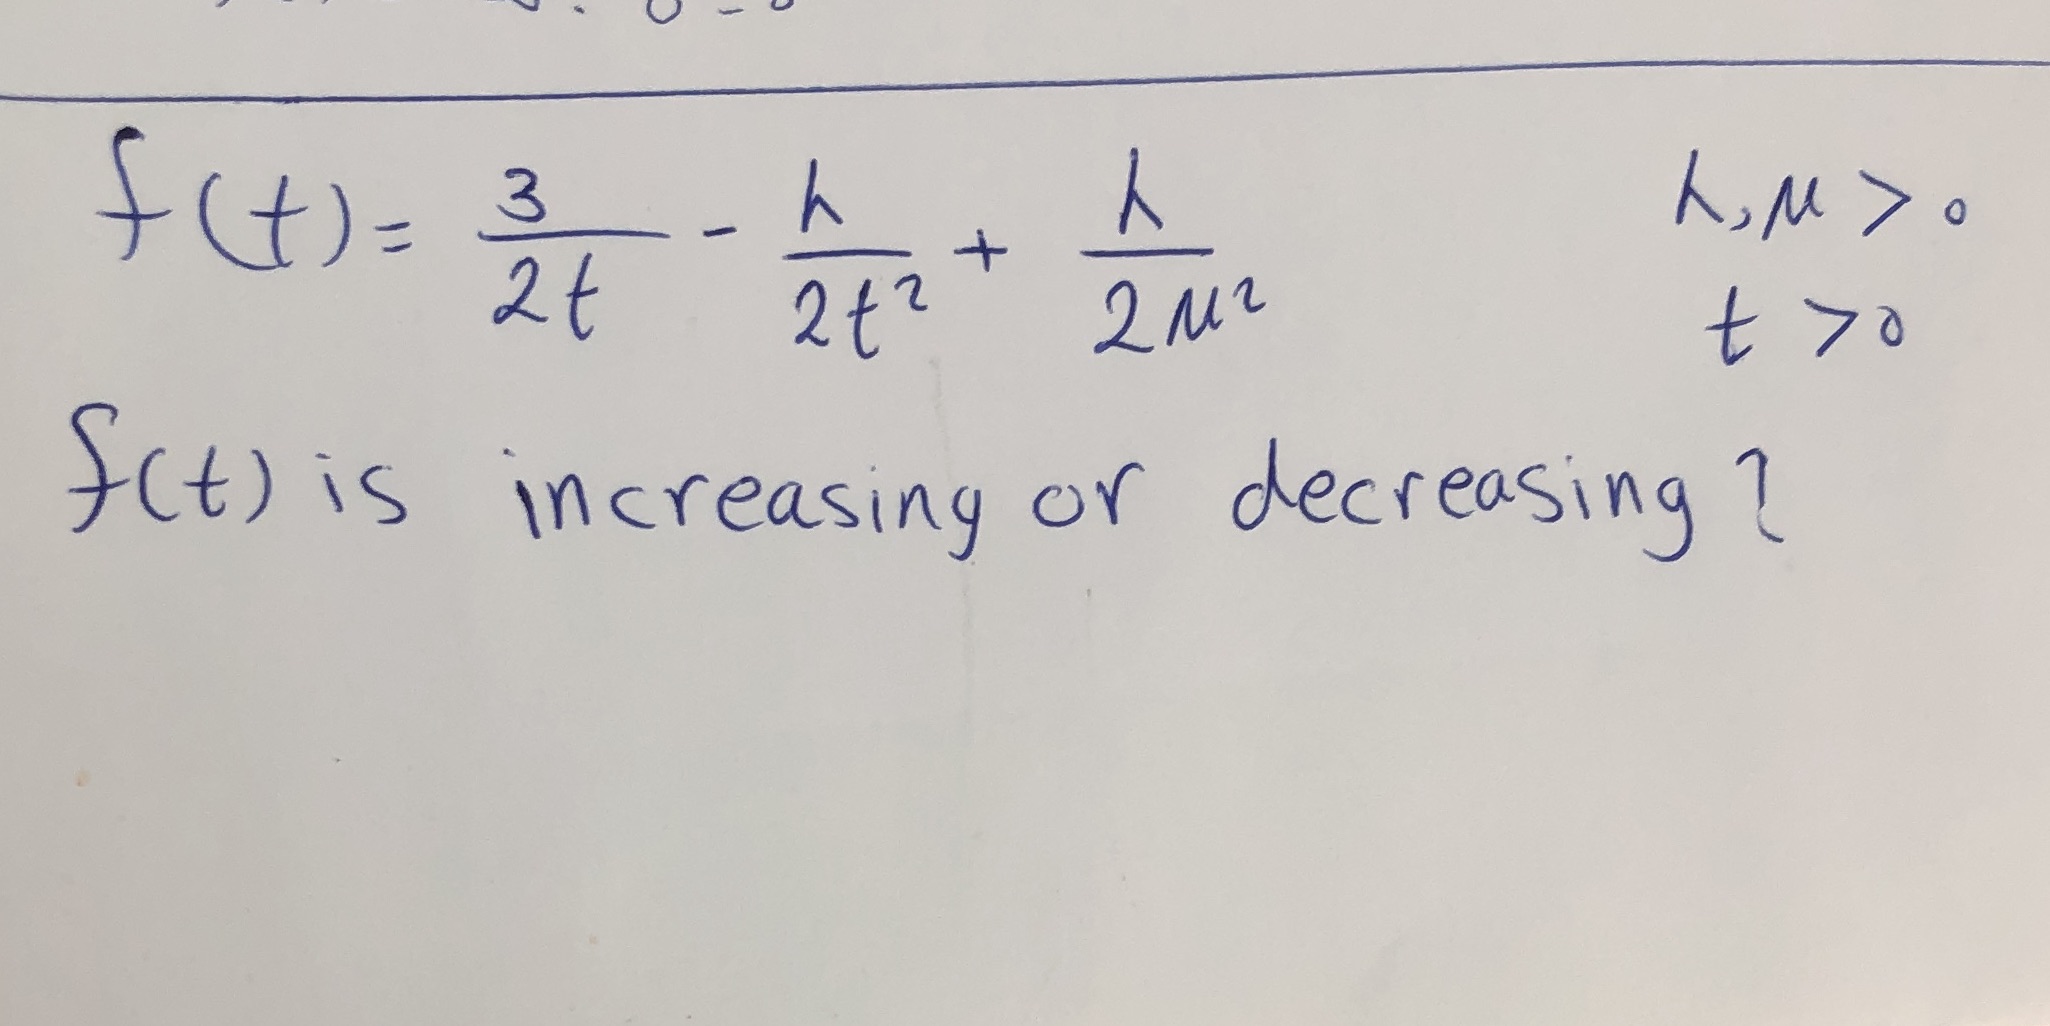 f(t) = 3/2t - λ/2t² + λ/2μ² λ, μ > 0
t > 0
f(t) is increasing or decreasing?